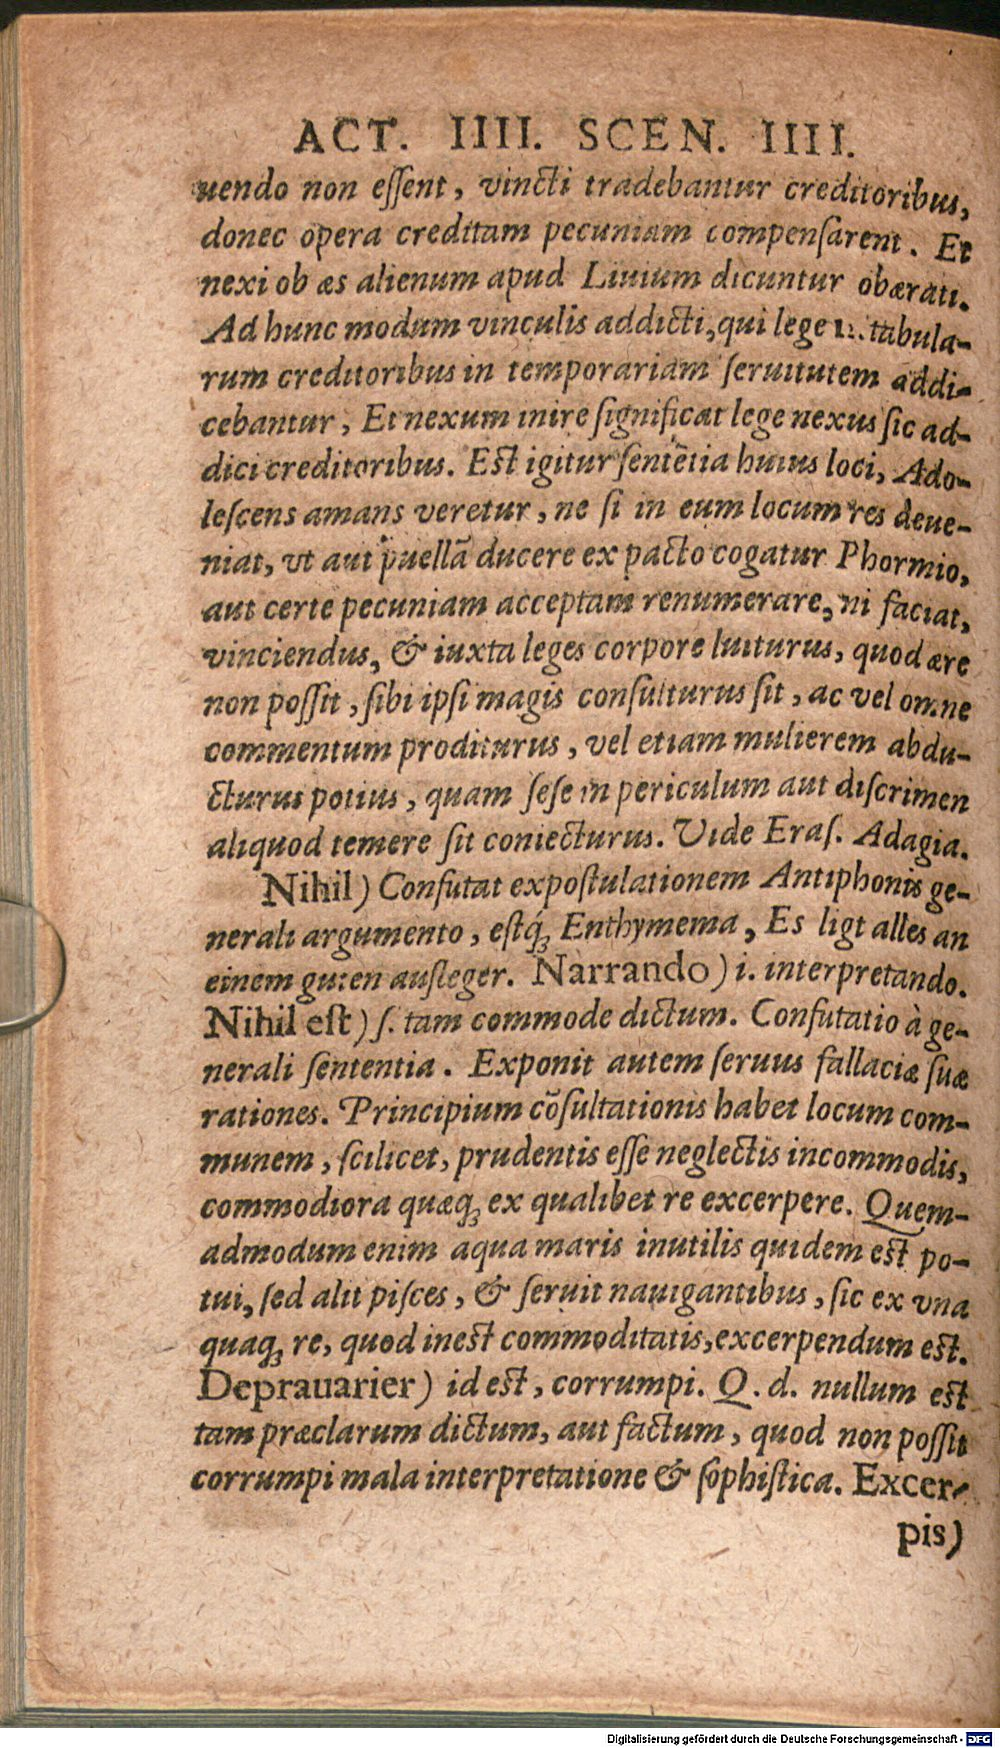 ACT. IIII. SCEN. IIII.
uendo non eſſent, vincti tradebantur creditoribus,
donec opera creditam pecuniam compenſarent. Et
nexi ob æs alienum apud Liuium dicuntur obærati.
Ad hunc modum vinculis addicti, qui lege tabula-
rum creditoribus in temporariam ſeruitutem addi-
cebantur, Et nexum inire ſignificat lege nexus ſic ad-
dici creditoribus. Eſt igitur ſentētia huius loci, Ado-
leſcens amans veretur, ne ſi in eum locum res deue-
niat, vt aut puellā ducere ex pacto cogatur Phormio,
aut certe pecuniam acceptam renumerare, ni faciat,
vinciendus, & iuxta leges corpore luiturus, quod ære
non poſſit, ſibi ipſi magis conſulturus ſit, ac vel omne
commentum proditurus, vel etiam mulierem abdu-
cturus potius, quam ſeſe in periculum aut diſcrimen
aliquod temere ſit coniecturus. Vide Eraſ. Adagia.
Nihil) Confutat expoſtulationem Antiphonis ge-
nerali argumento, eſtq́ꝫ Enthymema, Es ligt alles an
einem guten auſleger. Narrando) i. interpretando.
Nihil eſt) ſ. tam commode dictum. Confutatio à ge-
nerali ſententia. Exponit autem ſeruus fallaciæ ſuæ
rationes. Principium cōſultationis habet locum com-
munem, ſcilicet, prudentis eſſe neglectis incommodis,
commodiora quæqꝫ ex qualibet re excerpere. Quem-
admodum enim aqua maris inutilis quidem eſt po-
tui, ſed alit piſces, & ſeruit nauigantibus, ſic ex vna
quaqꝫ re, quod ineſt commoditatis, excerpendum eſt.
Deprauarier) id eſt, corrumpi. Q. d. nullum eſt
tam præclarum dictum, aut factum, quod non poſſit
corrumpi mala interpretatione & ſophiſtica. Excer-
pis)
Digitalisierung gefördert durch die Deutsche Forschungsgemeinschaft - DFG